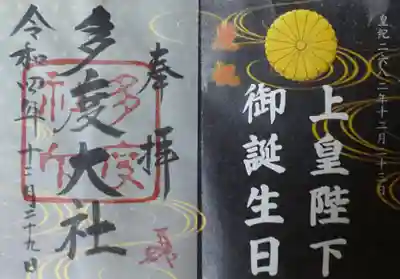 皇紀二六八二年十二月二十三日
奉祝
上皇陛下
御誕生日
奉拝
多度大社
令和四年十二月二十九日